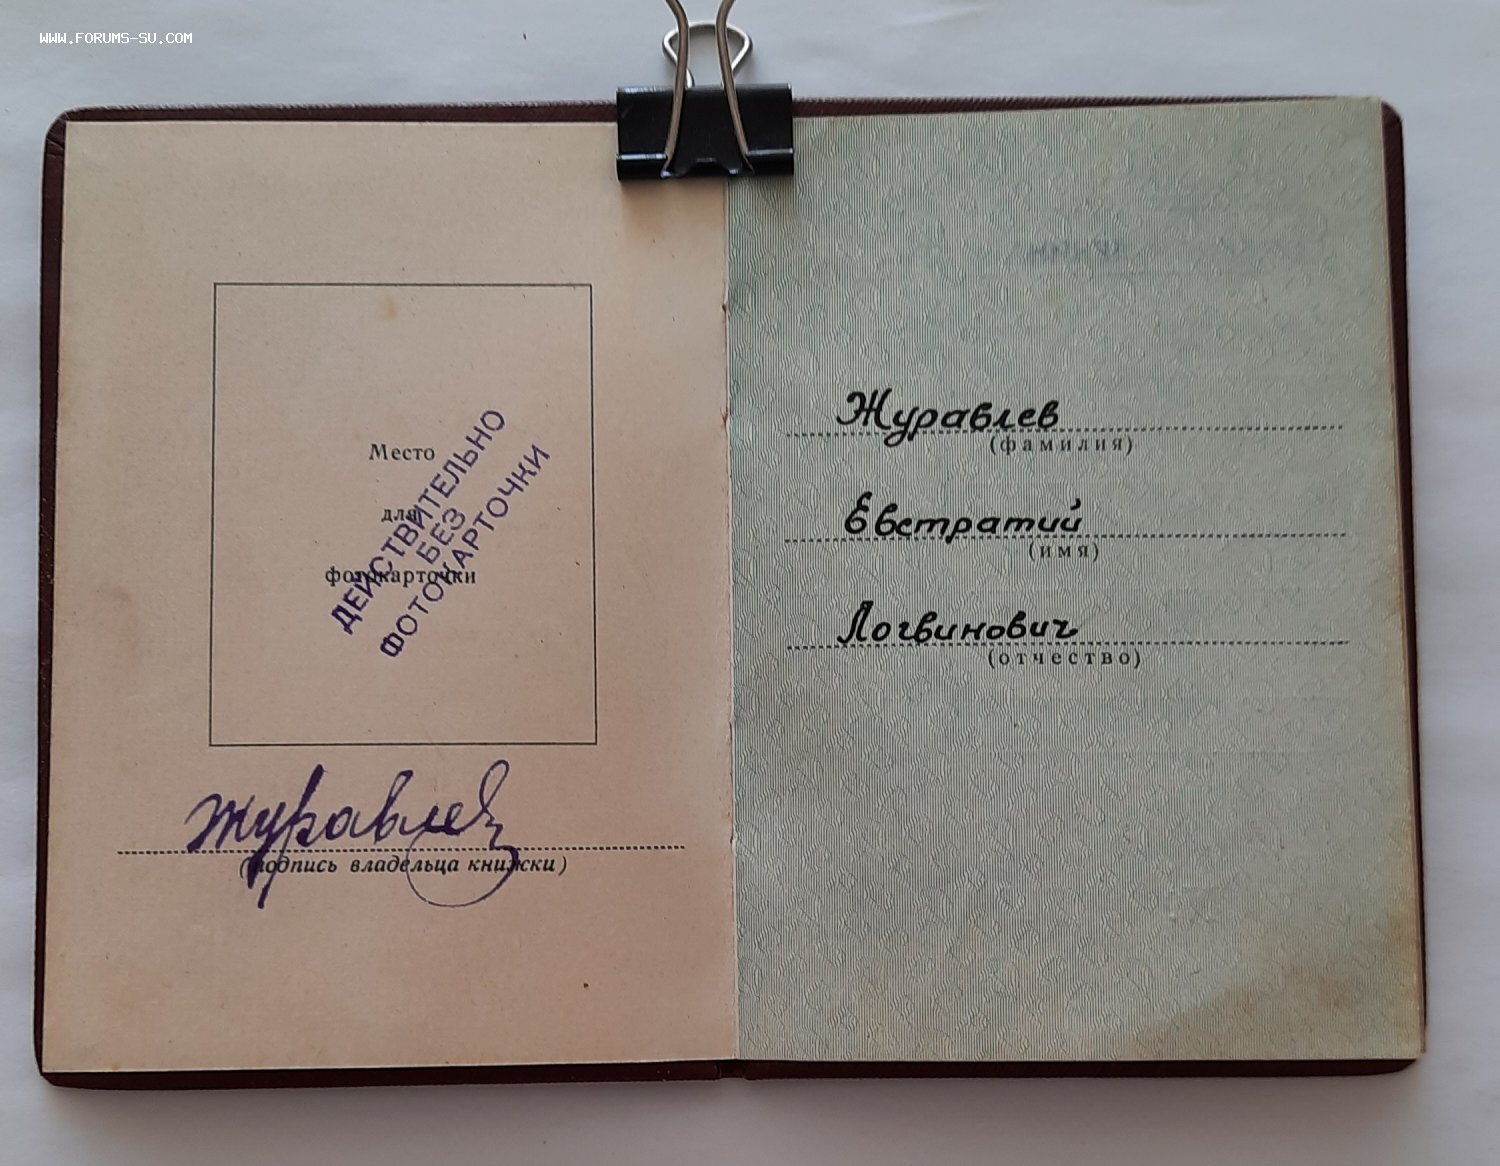 www.forums-su.com
Место
для
фотокарточки
ДЕЙСТВИТЕЛЬНО
БЕЗ
ФОТОКАРТОЧКИ
Журавлев
(подпись владельца книжки)
Журавлев
(фамилия)
Евстратий
(имя)
Логвинович
(отчество)